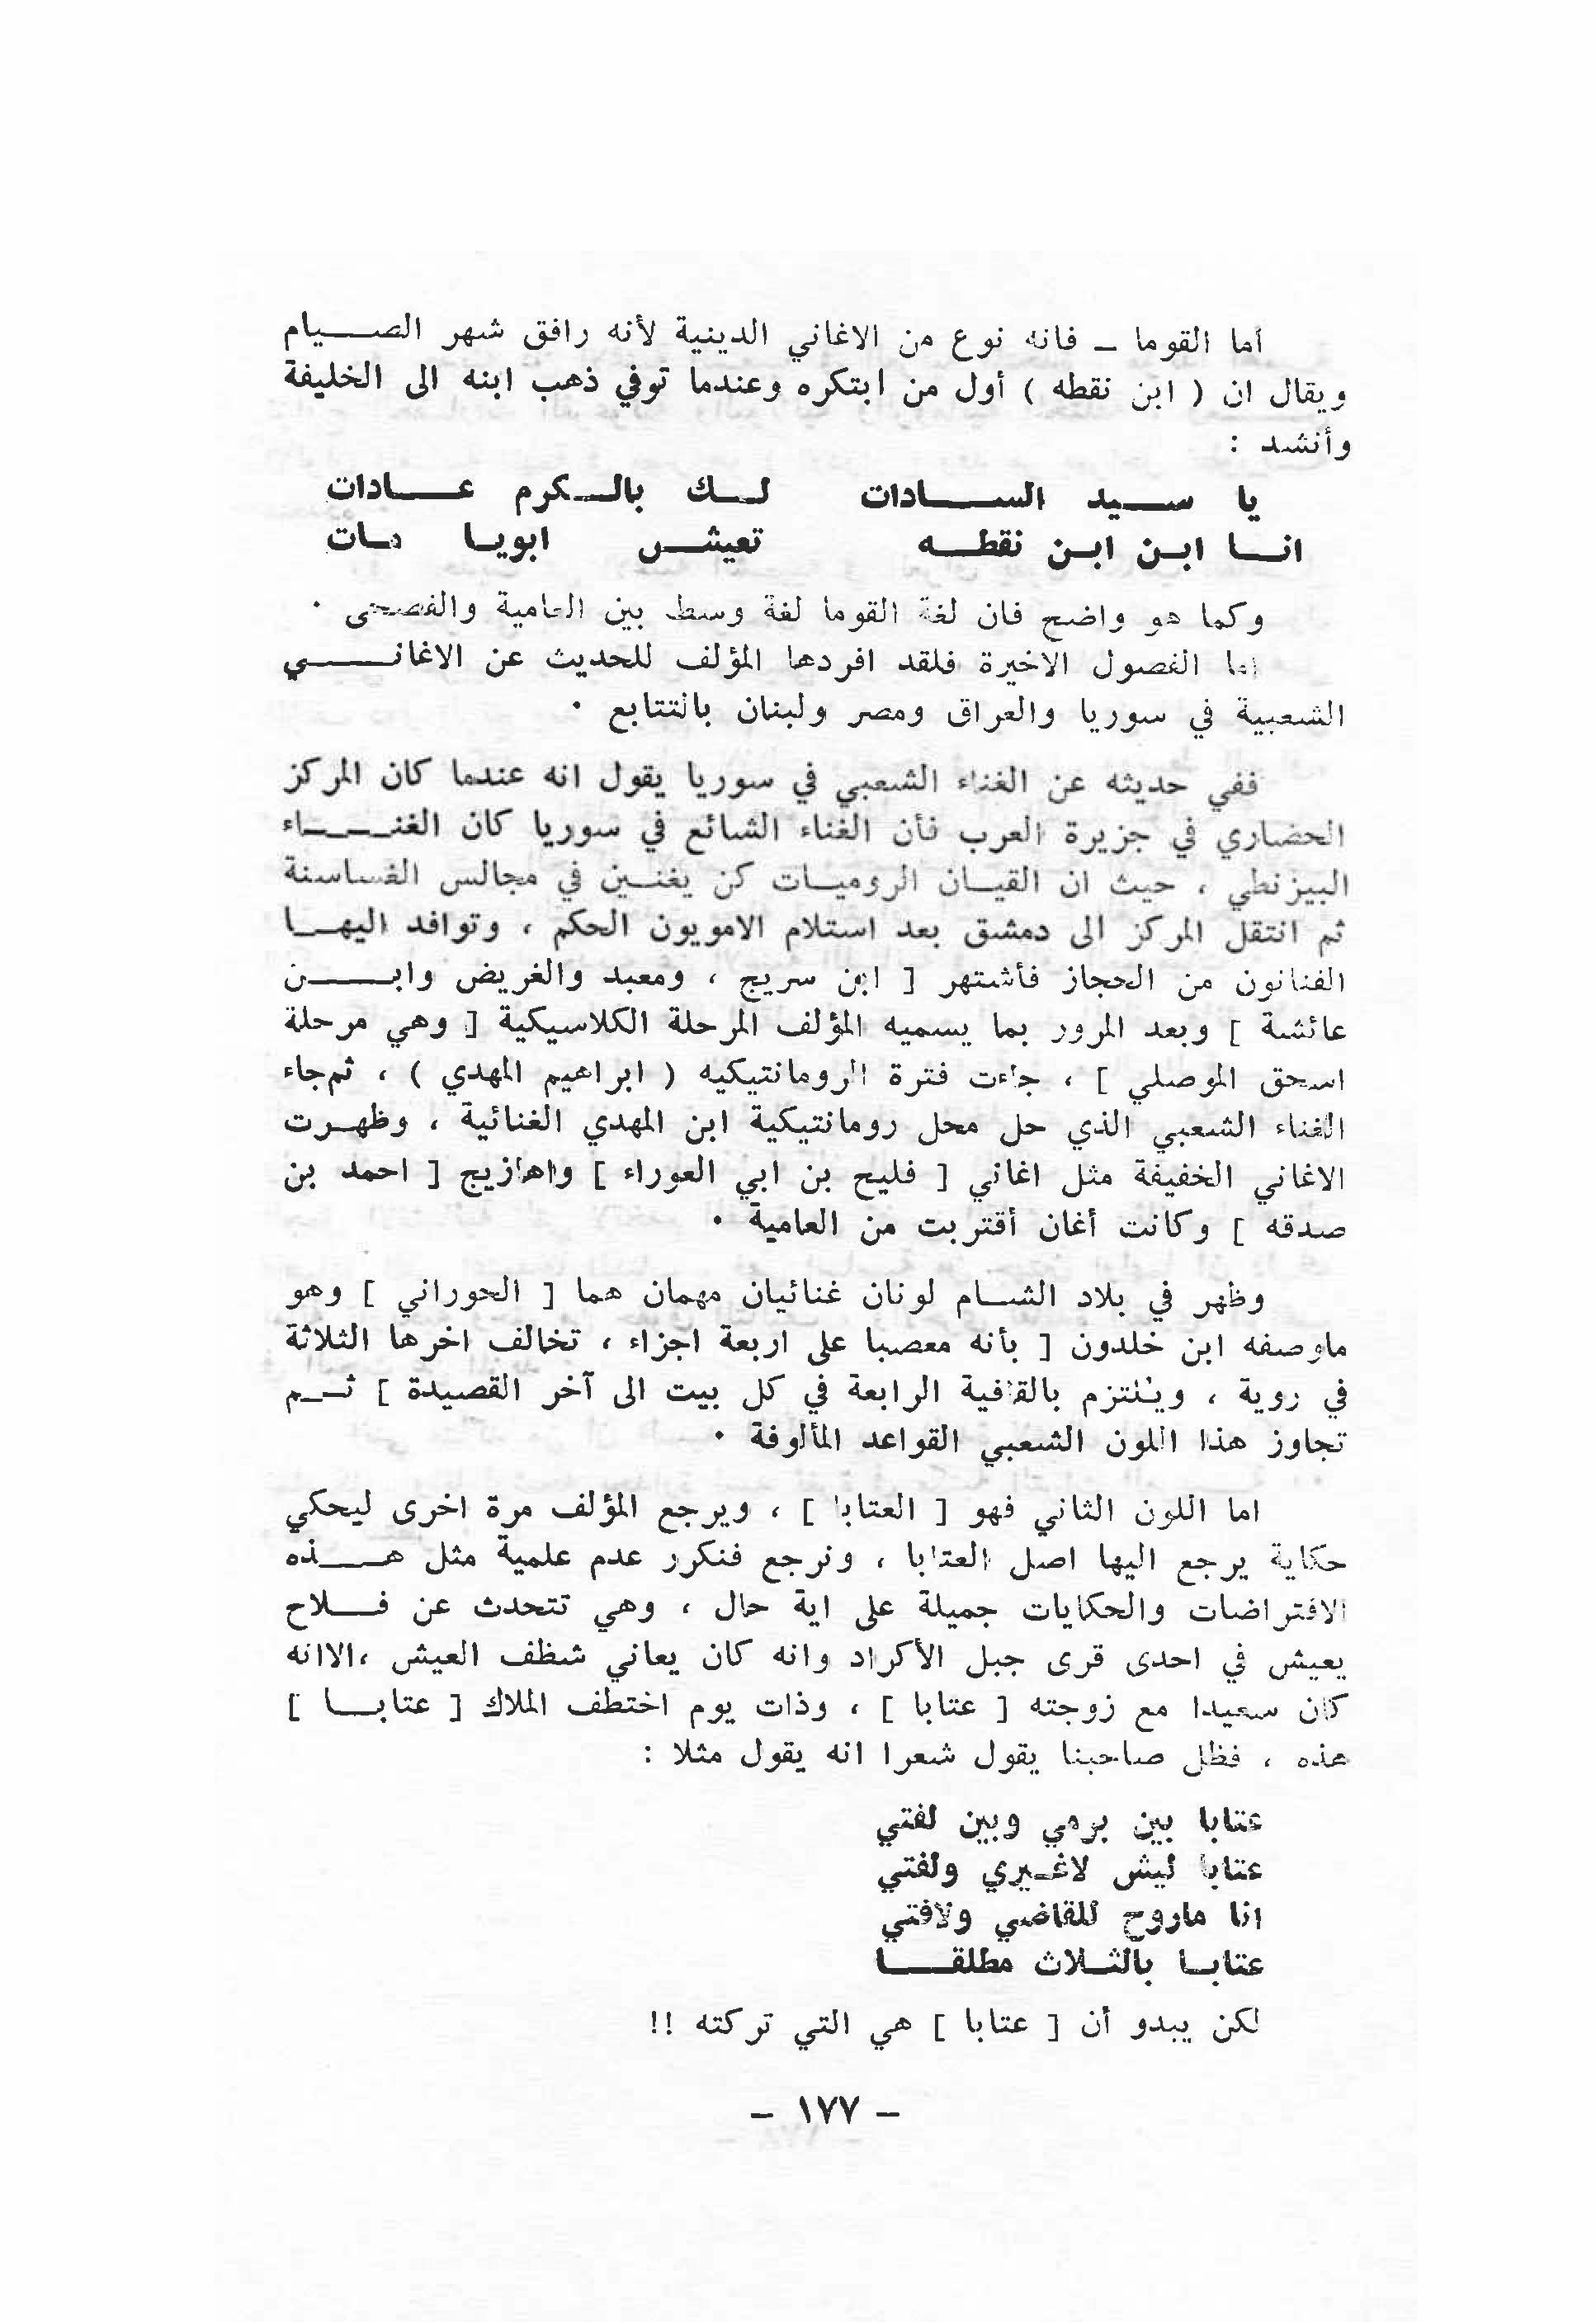 أما القوما ــ فانه نوع من الاغاني الدينية لأنه رافق شهر الصيام
ويقال ان ( ابن نقطه ) أول من ابتكره وعندما توفي ذهب ابنه الى الخليفة
وأنشد :
يا سيد السادات لك بالكرم عادات
انا ابن ابن نقطه تعيش ابويا مات
وكما هو واضح فان لغة القوما لغة وسط بين العامية والفصحى ٠
اما الفصول الاخيرة فلقد افردها المؤلف للحديث عن الاغاني
الشعبية في سوريا والعراق ومصر ولبنان بالتتابع ٠
ففي حديثه عن الغناء الشعبي في سوريا يقول انه عندما كان المركز
الحضاري في جزيرة العرب فأن الغناء الشائع في سوريا كان الغناء
البيزنطي ، حيث ان القيان الروميات كن يغنين في مجالس الغساسنة
ثم انتقل المركز الى دمشق بعد استلام الامويون الحكم ، وتوافد اليها
الفنانون من الحجاز فأشتهر [ ابن سريج ، ومعبد والغريض وابن
عائشة ] وبعد المرور بما يسميه المؤلف المرحلة الكلاسيكية [ وهي مرحلة
اسحق الموصلي ] ، جاءت فترة الرومانتيكيه ( ابراهيم المهدي ) ، ثم جاء
الغناء الشعبي الذي حل محل رومانتيكية ابن المهدي الغنائية ، وظهرت
الاغاني الخفيفة مثل اغاني [ فليح بن ابي العوراء ] واهازيج [ احمد بن
صدقه ] وكانت أغان أقتربت من العامية ٠
وظهر في بلاد الشام لونان غنائيان مهمان هما [ الحوراني ] وهو
ماوصفه ابن خلدون [ بأنه معصبا على اربعة اجزاء ، تخالف اخرها الثلاثة
في روية ، ويلتزم بالقافية الرابعة في كل بيت الى آخر القصيدة ] ثم
تجاوز هذا اللون الشعبي القواعد المألوفة ٠
اما اللون الثاني فهو [ العتابا ] ، ويرجع المؤلف مرة اخرى ليحكي
حكاية يرجع اليها اصل العتابا ، ونرجع فنكرر عدم علمية مثل هذه
الافتراضات والحكايات جميلة على اية حال ، وهي تتحدث عن فلاح
يعيش في احدى قرى جبل الأكراد وانه كان يعاني شظف العيش ،الاانه
كان سعيدا مع زوجته [ عتابا ] ، وذات يوم اختطف الملاك [ عتابا ]
هذه ، فظل صاحبنا يقول شعرا انه يقول مثلا :
عتابا بين برمي وبين لفتي
عتابا ليش لاغيري ولفتي
انا ماروح للقاضي ولافتي
عتابا بالثلاث مطلقا
لكن يبدو أن [ عتابا ] هي التي تركته !!
– ١٧٧ –